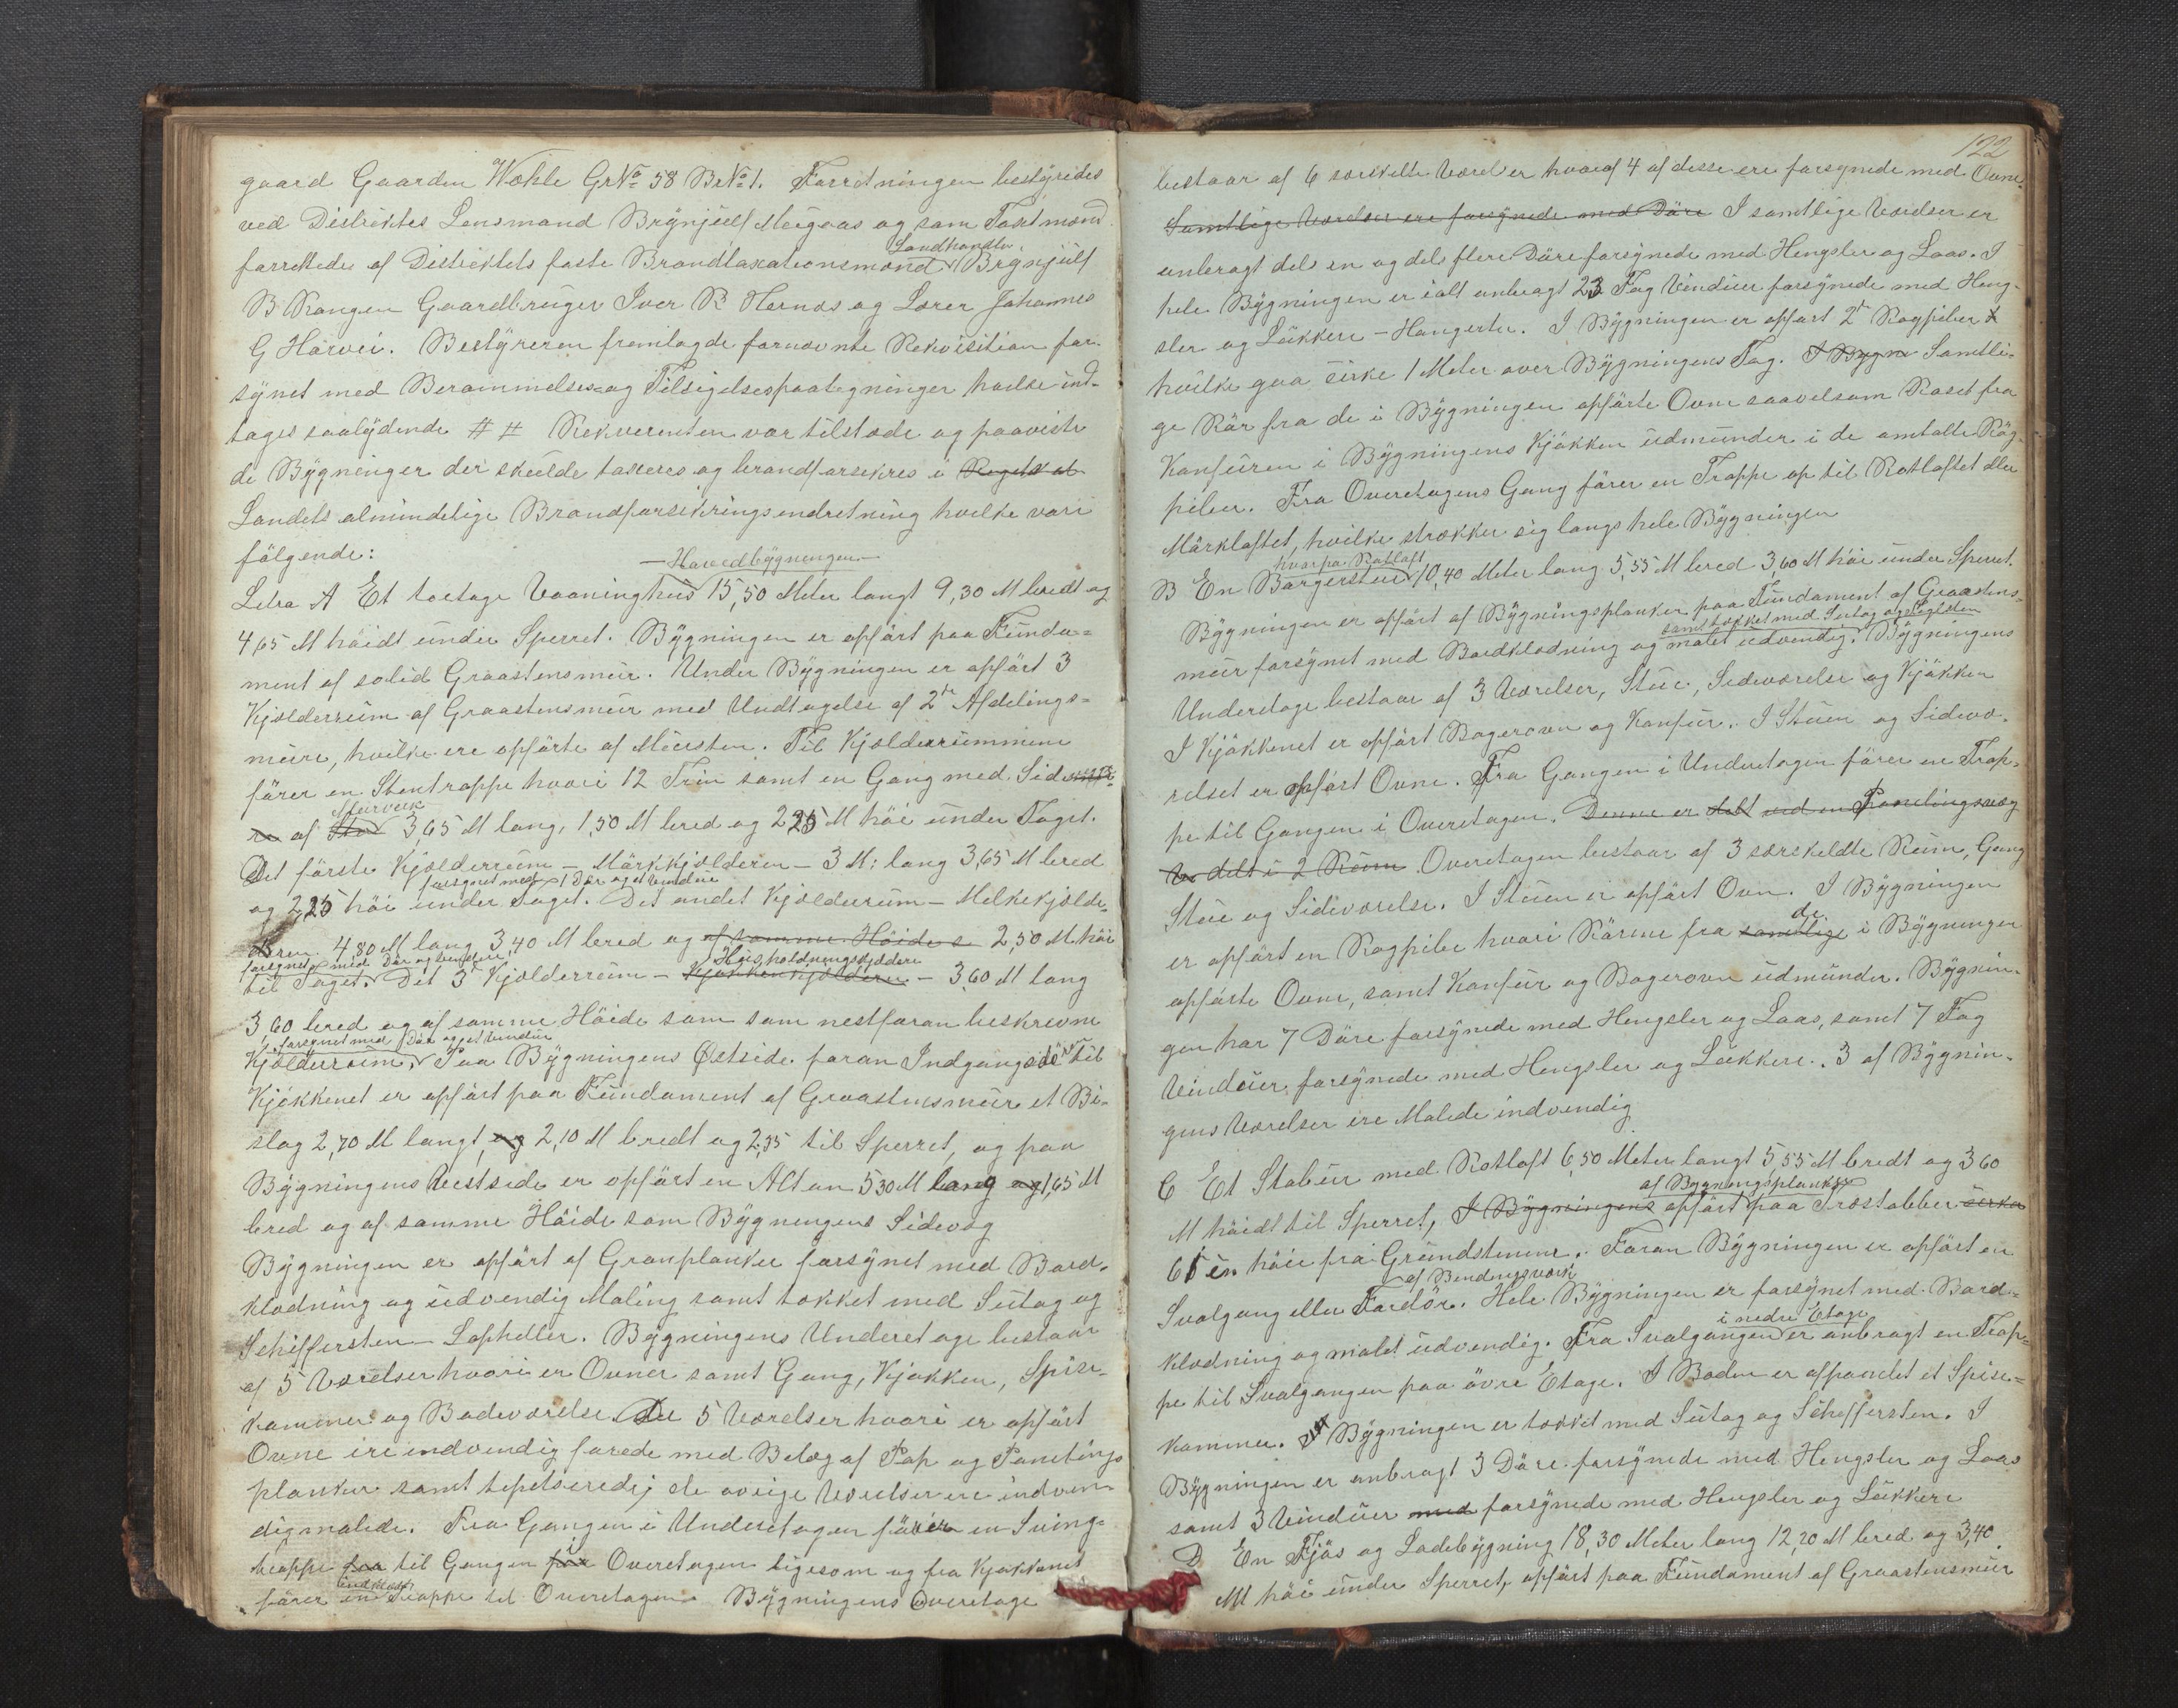 gaard Gaarden Wæhle GrNo 58 BrNo 1. Forretningen bestyredes
ved Distriktes Lensmand Brynjulf Meigaas og som Taxtmænd
forrettedes af Distriktets faste Brandtaxationsmænd Landhandler Brynjulf
B Rangen Gaardbruger Iver R Hernæs og Lærer Johannes
G Hærvei. Bestyreren fremlagde fornævnte Rekvisition for-
synet med Berammelses og Tilsigelsespaategninger hvilke ind-
tages saalydende ## Rekverenten var tilstæde og paaviste
de Bygninger der skulde taxeres og brandforsekres i
Landets almindelige Brandforsikringsindretning hvilke vare
følgende:
— Hovedbygningen —
Letra A Et toetage Vaaninghus 15,50 Meter langt 9,30 M bredt og
4,65 M høidt under Sperret. Bygningen er opført paa Funda-
ment af solid Graastensmur. Under Bygningen er opført 3
Kjælderrum af Graastensmur med Undtagelse af 2de Afdelings-
mure, hvilke ere opførte af Mursten. Til Kjælderrummene
fører en Stentrappe hvori 12 Trin samt en Gang med Side
re af Sturverk 3,65 M lang, 1,50 M bred og 2,25 M høi under Taget.
Det første Kjælderrum — Mørkkjælderen — 3 M: lang 3,65 M bred
forsynet med 1 Dør og et Vindue
og 2,25 høi under Taget. Det andet Kjælderrum — Melkekjælde-
ren 4,80 M lang 3,40 M bred og af samme Høide s 2,50 M høi
forsynet med Dør og Vindue Husholdningskjælder
til Taget. Det 3de Kjælderrum — Kjøkkenkjælderen — 3,60 M lang
3,60 bred og af samme Høide som som nestforan beskrevne
forsynet med 1 Dør og et Vindue
Kjælderrum, Paa Bygningens Østside foran Indgangsdøren til
Kjøkkenet er opført paa Fundament af Graastensmur et Bi-
slag 2,70 M langt, og 2,10 M bredt og 2,35 til Sperret, og paa
Bygningens Vestside er opført en Altan 5,30 M lang og 1,65 M
bred og af samme Høide som Bygningens Sidevæg
Bygningen er opført af Granplanker forsynet med Bord-
klædning og udvendig Maling samt tækket med Sutag og
Schiffersten — Lopheller. Bygningens Underetage bestaar
af 5 Værelser hvori er Ovner samt Gang, Kjøkken, Spise-
kammer og Badeværelse. De 5 Værelser hvori er opført
Ovne ere indvendig forede med Belæg af Pap og Panelings
planker samt tepetserede; de øvrige Værelser ere indven-
dig malede. Fra Gangen i Underetagen fører en Sving-
trappe fra til Gangen fra Overetagen ligesom og fra Kjøkkenet
fører en Trappe til Overetagen. Bygningens Overetage
122
bestaar af 6 særskilte Værelser hvoraf 4 af disse ere forsynede med Ovne.
Samtlige Værelser ere forsynede med Døre I samtlige Værelser er
anbragt dels en og dels flere Døre forsynede med Hengsler og Laas. I
hele Bygningen er ialt anbragt 23 Fag Vinduer forsynede med Heng-
sler og Lukkere — Hængerter. I Bygningen er opført 2de Røgpiber
hvilke gaa cirke 1 Meter over Bygningens Tag. I Bygn Samtli-
ge Rør fra de i Bygningen opførte Ovne saavelsom Røret fra
Komfuren i Bygningens Kjøkken udmunder i de omtalte Røg-
piber. Fra Overetagens Gang fører en Trappe op til Rotloftet eller
Mørkloftet, hvilke strækker sig langs hele Bygningen
hvorpaa Rotloft
B En Borgerstue 10,40 Meter lang 5,55 M bred 3,60 M høi under Sperret.
Bygningen er opført af Bygningsplanker paa Fundament af Graastens-
samt tækket med Sutag og Teglsten
mur forsynet med Bordklædning og malet udvendig. Bygningens
Underetage bestaar af 3 Værelser, Stue, Sideværelse og Kjøkken
I Kjøkkenet er opført Bagerovn og Komfur. I Stuen og Sidevæ-
relset er opført Ovne. Fra Gangen i Underetagen fører en Trap-
pe til Gangen i Overetagen. Denne er delt ved en Panelingsvæg
delt i 2 Rum Overetagen bestaar af 3 særskildte Rum, Gang
Stue og Sideværelse. I Stuen er opført Ovn. I Bygningen
er opført en Røgpibe hvori Rørene fra samtlige de i Bygningen
opførte Ovne, samt Komfur og Bagerovn udmunder. Bygnin-
gen har 7 Døre forsynede med Hengsler og Laas, samt 7 Fag
Vinduer forsynede med Hengsler og Lukkere. 3 af Bygnin-
gens Værelser ere Malede indvendig
C Et Stabur med Rotloft 6,50 Meter langt 5,55 M bredt og 3,60
af Bygningsplanker
M høidt til Sperret, I Bygningens opført paa Træstabber cirka
høie fra Grundstenene. Foran Bygningen er opført en
af Bendingsværk
Svalgang eller Fordør. Hele Bygningen er forsynet med Bord-
i nedre Etage
klædning og malet udvendig. Fra Svalgangen er anbragt en Trap-
pe til Svalgangen paa øvre Etage. I Boden er afpanelet et Spise-
kammer. Bygningen er tækket med Sutag og Schiffersten. I
Bygningen er anbragt 3 Døre forsynede med Hengsler og Laas
samt 3 Vinduer med forsynede med Hengsler og Lukkere
D En Fjøs og Ladebygning 18,30 Meter lang 12,20 M bred og 3,40
M høi under Sperret, opført paa Fundament af Graastensmur